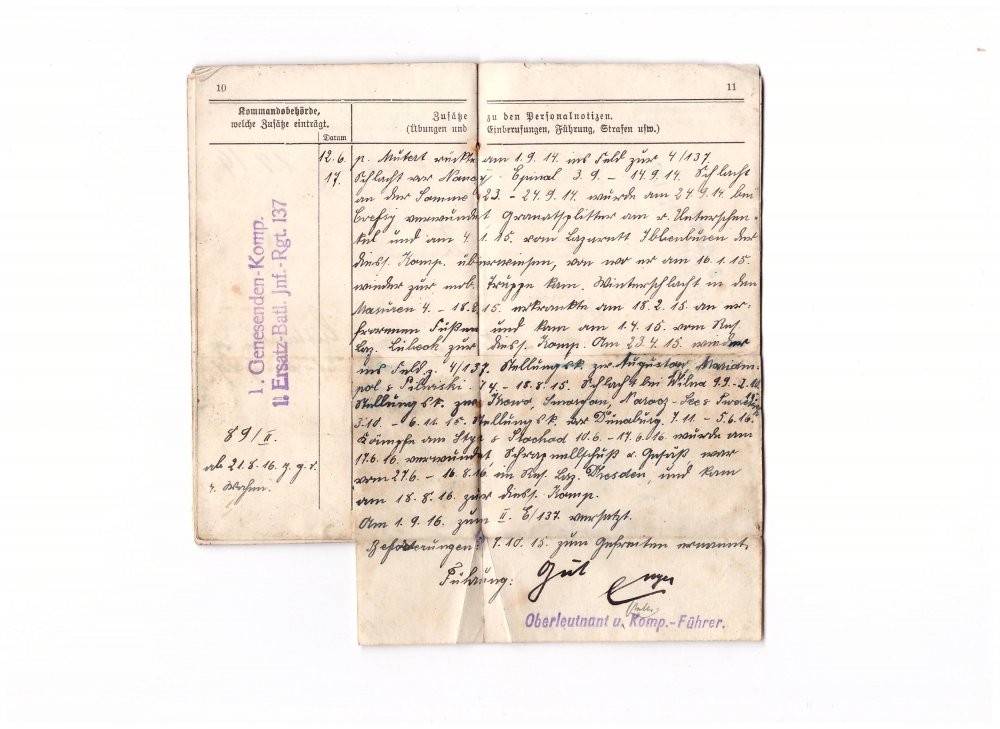 10
11
Kommandobehörde,
welche Zusätze einträgt.
Datum
Zusätze zu den Personalnotizen.
(Übungen und Einberufungen, Führung, Strafen usw.)
1. Genesenden-Komp.
II. Ersatz-Batl. Jnf.-Rgt. 137
89/II.
ab 21.8.16. g. g. v.
4. Wochen.
12.6.
17.
p. Mutert rückte am 1.9.14. ins Feld zur 4/137.
Schlacht vor Nancy - Epinal 3.9. - 14.9.14. Schlacht
an der Somme 23. - 24.9.14. wurde am 24.9.14 bei
verwundet, Granatsplitter am r. Unterschen-
kel und am 4.1.15. vom Lazarett Ibbenbüren der
diess. Komp. überwiesen, von wo er am 16.1.15.
wieder zur mob. Truppe kam. Winterschlacht in den
Masuren 4. - 18.2.15. erkrankte am 18.2.15 an er-
frorenen Füßen und kam am 1.4.15. vom Res.
Laz. Lübeck zur diess. Komp. Am 23.4.15. wieder
ins Feld z. 4/137. Stellungsk. zw. Augustow, Mariam-
pol & Pilwiski - 18.8.15. Schlacht bei Wilna 9.9.-2.10.
Stellungsk. zw. Smorgon, Narocz-See &
3.10. - 6.11.15. Stellungsk. vor Dünaburg 7.11. - 5.6.16.
Kämpfe am Styr & Stochod 10.6. - 17.6.16. wurde am
17.6.16. verwundet, Schrapnellschuß r. Gesäß war
vom 27.6. - 16.8.16. im Res. Laz. Dresden, und kam
am 18.8.16. zur diess. Komp.
Am 1.9.16. zum II. E/137. versetzt.
Beförderungen: 7.10.15. zum Gefreiten ernannt.
Führung: Gut
Oberleutnant u. Komp.-Führer.